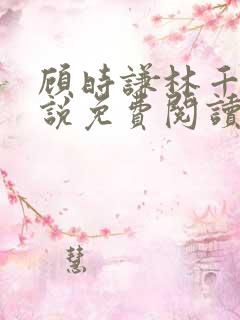 顾时謙林千
說免費閱讀
慧